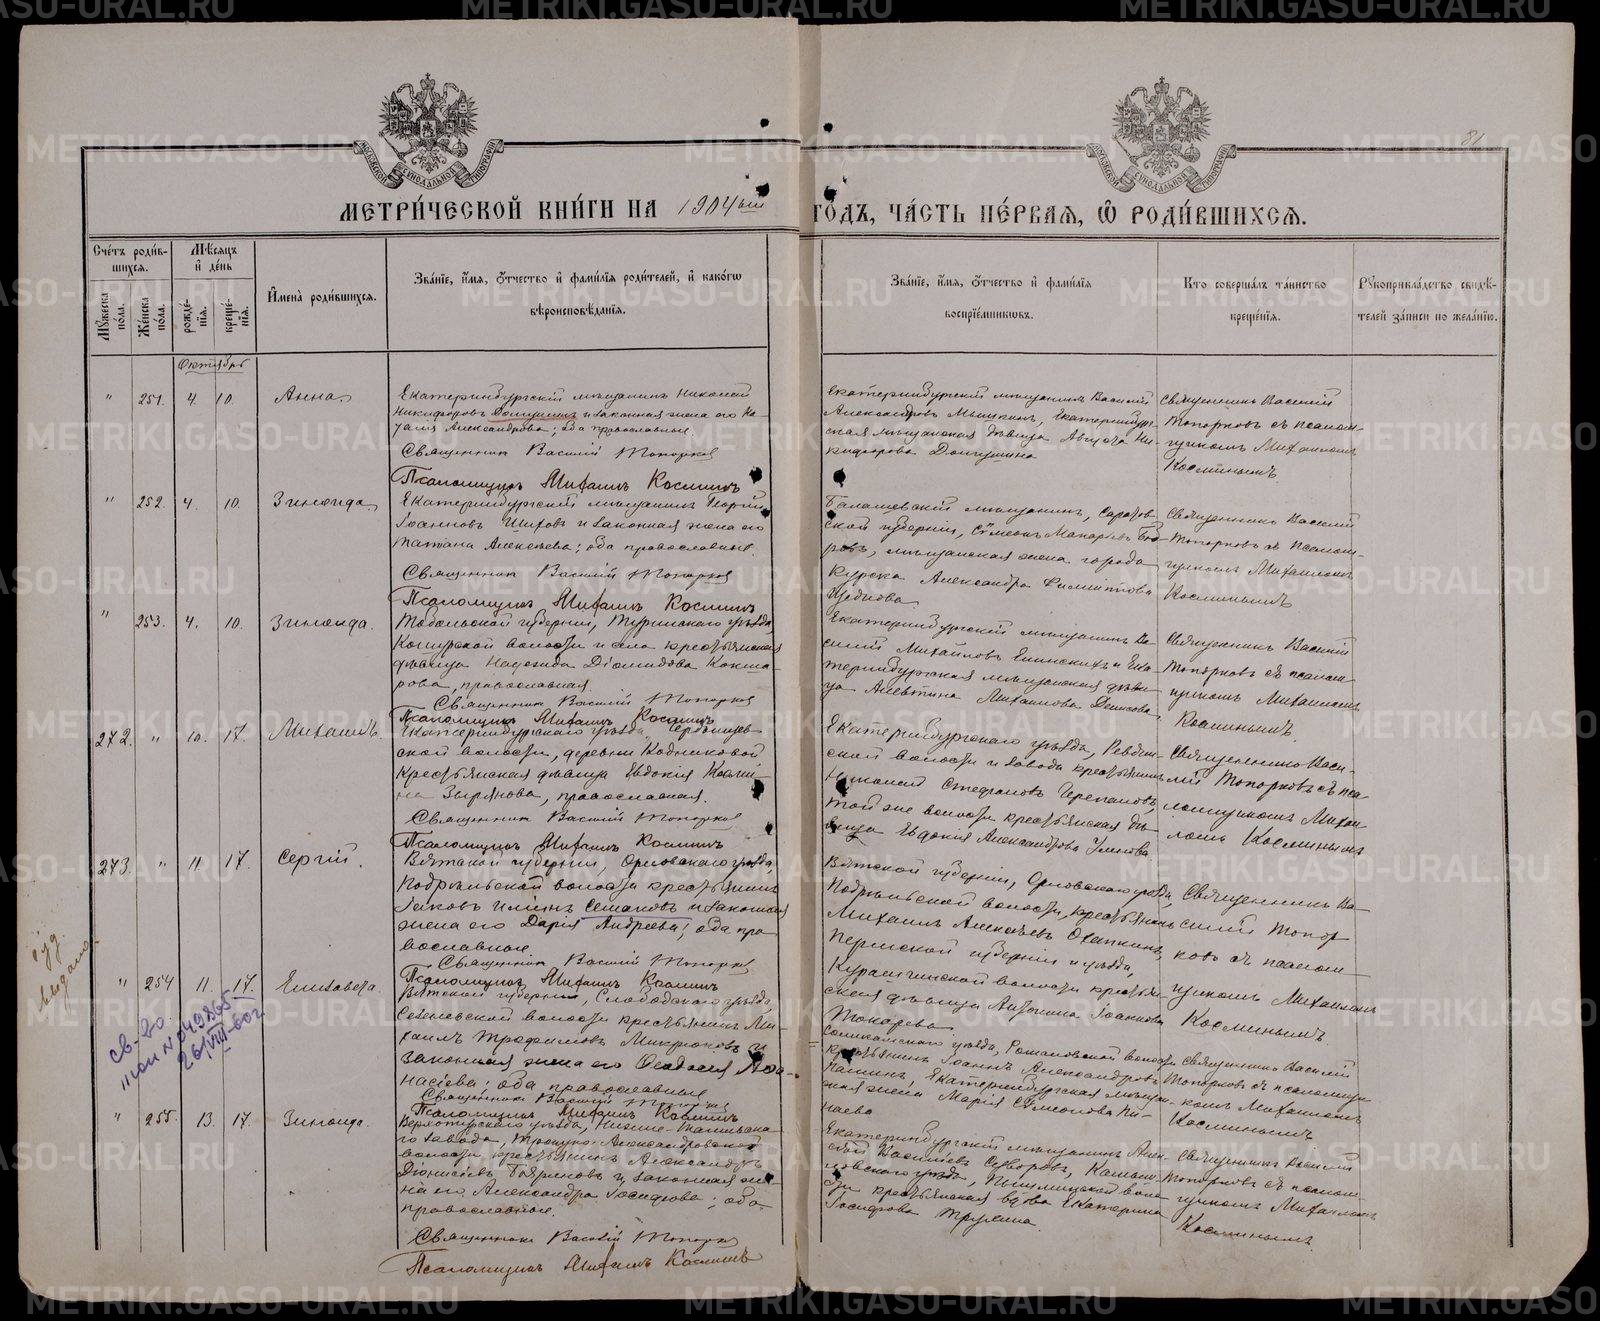 81
МЕТРИ́ЧЕСКОЙ КНИ́ГИ НА 1904ый ГО́ДЪ, ЧА́СТЬ ПЕ́РВАЯ, Ѡ РОДИ́ВШИХСЯ.
Сче́тъ роди́в-
шихся.
Му́жеска по́ла.
Же́нска по́ла.
Мѣ́сяцъ
и҆ де́нь
рожде́-
нїя.
креще́-
нїя.
И҆мена̀ роди́вшихся.
Зва́нїе, и҆́мя, ѻ҆́тчество и҆ фами́лїя роди́телей, и҆ како́гѡ
вѣроисповѣ́данїя.
Зва́нїе, и҆́мя, ѻ҆́тчество и҆ фами́лїя
воспрїе́мникѡвъ.
Кто̀ соверша́лъ та́инство
креще́нїя.
Рꙋкоприкла́дство свидѣ́-
телей за́писи по жела́нїю.
Октябрь
" 251. 4. 10. Анна.
Екатеринбургскій мѣщанинъ Николай
Никифоровъ и законная жена его На-
талія Александрова; оба православные.
Священникъ Василій Топорковъ
Псаломщикъ Михаилъ Косминъ
Екатеринбургскій мѣщанинъ Василій
Александровъ Мышкинъ, Екатеринбург-
ская мѣщанская дѣвица Августа Ни-
кифорова
Священникъ Василій
Топорковъ съ псалом-
щикомъ Михаиломъ
Косминымъ
" 252. 4. 10. Зинаида.
Екатеринбургскій мѣщанинъ Георгій
Іоанновъ Шиховъ и законная жена его
Татіана Алексѣева; оба православные.
Священникъ Василій Топорковъ
Псаломщикъ Михаилъ Косминъ
Балашевскій мѣщанинъ, Саратов-
ской губерніи, Сѵмеонъ Макаровъ
ровъ, мѣщанская жена города
Курска Александра Филиппова
Священникъ Василій
Топорковъ съ Псалом-
щикомъ Михаиломъ
Косминымъ
" 253. 4. 10. Зинаида.
Тобольской губерніи, Туринскаго уѣзда,
Кошукской волости и села крестьянская
дѣвица Надежда Діомидова Кокша-
рова, православная.
Священникъ Василій Топорковъ
Псаломщикъ Михаилъ Косминъ
Екатеринбургскій мѣщанинъ Ва-
силій Михайловъ и Ека-
теринбургская мѣщанская дѣви-
ца Алевтина Михаилова Денисова.
Священникъ Василій
Топорковъ съ псалом-
щикомъ Михаиломъ
Косминымъ
272. " 10. 17. Михаилъ.
Екатеринбургскаго уѣзда,
ской волости, деревни Кодниковой
крестьянская дѣвица Евдокія Косми-
на Зырянова, православная.
Священникъ Василій Топорковъ
Псаломщикъ Михаилъ Косминъ
Екатеринбургскаго уѣзда, Ревдин-
ской волости и завода крестьянинъ
Николай Стефановъ Черепановъ,
той же волости крестьянская дѣ-
вица Евдокія Александрова
Священникъ Васи-
лій Топорковъ съ пса-
ломщикомъ Михаи-
ломъ Косминымъ
273. " 11. 17. Сергій.
Вятской губерніи, Орловскаго уѣзда,
Подрѣльской волости крестьянинъ
Іаковъ Семаковъ и законная
жена его Дарія Андреева; оба пра-
вославные.
Священникъ Василій Топорковъ
Псаломщикъ Михаилъ Косминъ
Вятской губерніи, Орловскаго уѣзда,
Подрѣльской волости, крестьянинъ
Михаилъ Алексѣевъ Охапкинъ,
Пермской губерніи и уѣзда,
Курашимской волости крестьян-
ская дѣвица Антонина Іоаннова
Токарева
Священникъ Ва-
силій Топор-
ковъ съ псалом-
щикомъ Михаиломъ
Косминымъ.
" 254 11. 17. Елизавета.
Вятской губерніи, Слободскаго уѣзда,
волости крестьянинъ Ми-
хаилъ Трофимовъ Микрюковъ и
законная жена его Ѳеодосія Аѳа-
насіева; оба православные
Священникъ Василій Топорковъ
Псаломщикъ Михаилъ Косминъ
Соликамскаго уѣзда, Романовской волости
крестьянинъ Іоаннъ Александровъ
Екатеринбургская мѣщан-
ская жена Марія Сѵмеонова
Священникъ Василій
Топорковъ съ псаломщи-
комъ Михаиломъ
Косминымъ
" 255. 13. 17. Зинаида.
Верхотурскаго уѣзда, Нижне-Тагильска-
го завода, Троицко-Александровской
волости крестьянинъ Александръ
Діонисіевъ и законная же-
на его Александра Іосифова; оба
православные.
Священникъ Василій Топорковъ
Псаломщикъ Михаилъ Косминъ
Екатеринбургскій мѣщанинъ Алек-
сѣй Василіевъ Суворовъ, Камыш-
ловскаго уѣзда, Пышминской воло-
сти крестьянская вдова Екатерина
Іосифова
Священникъ Василій
Топорковъ съ псалом-
щикомъ Михаиломъ
Косминымъ.
выдано.
св-во
METRIKI.GASO-URAL.RU